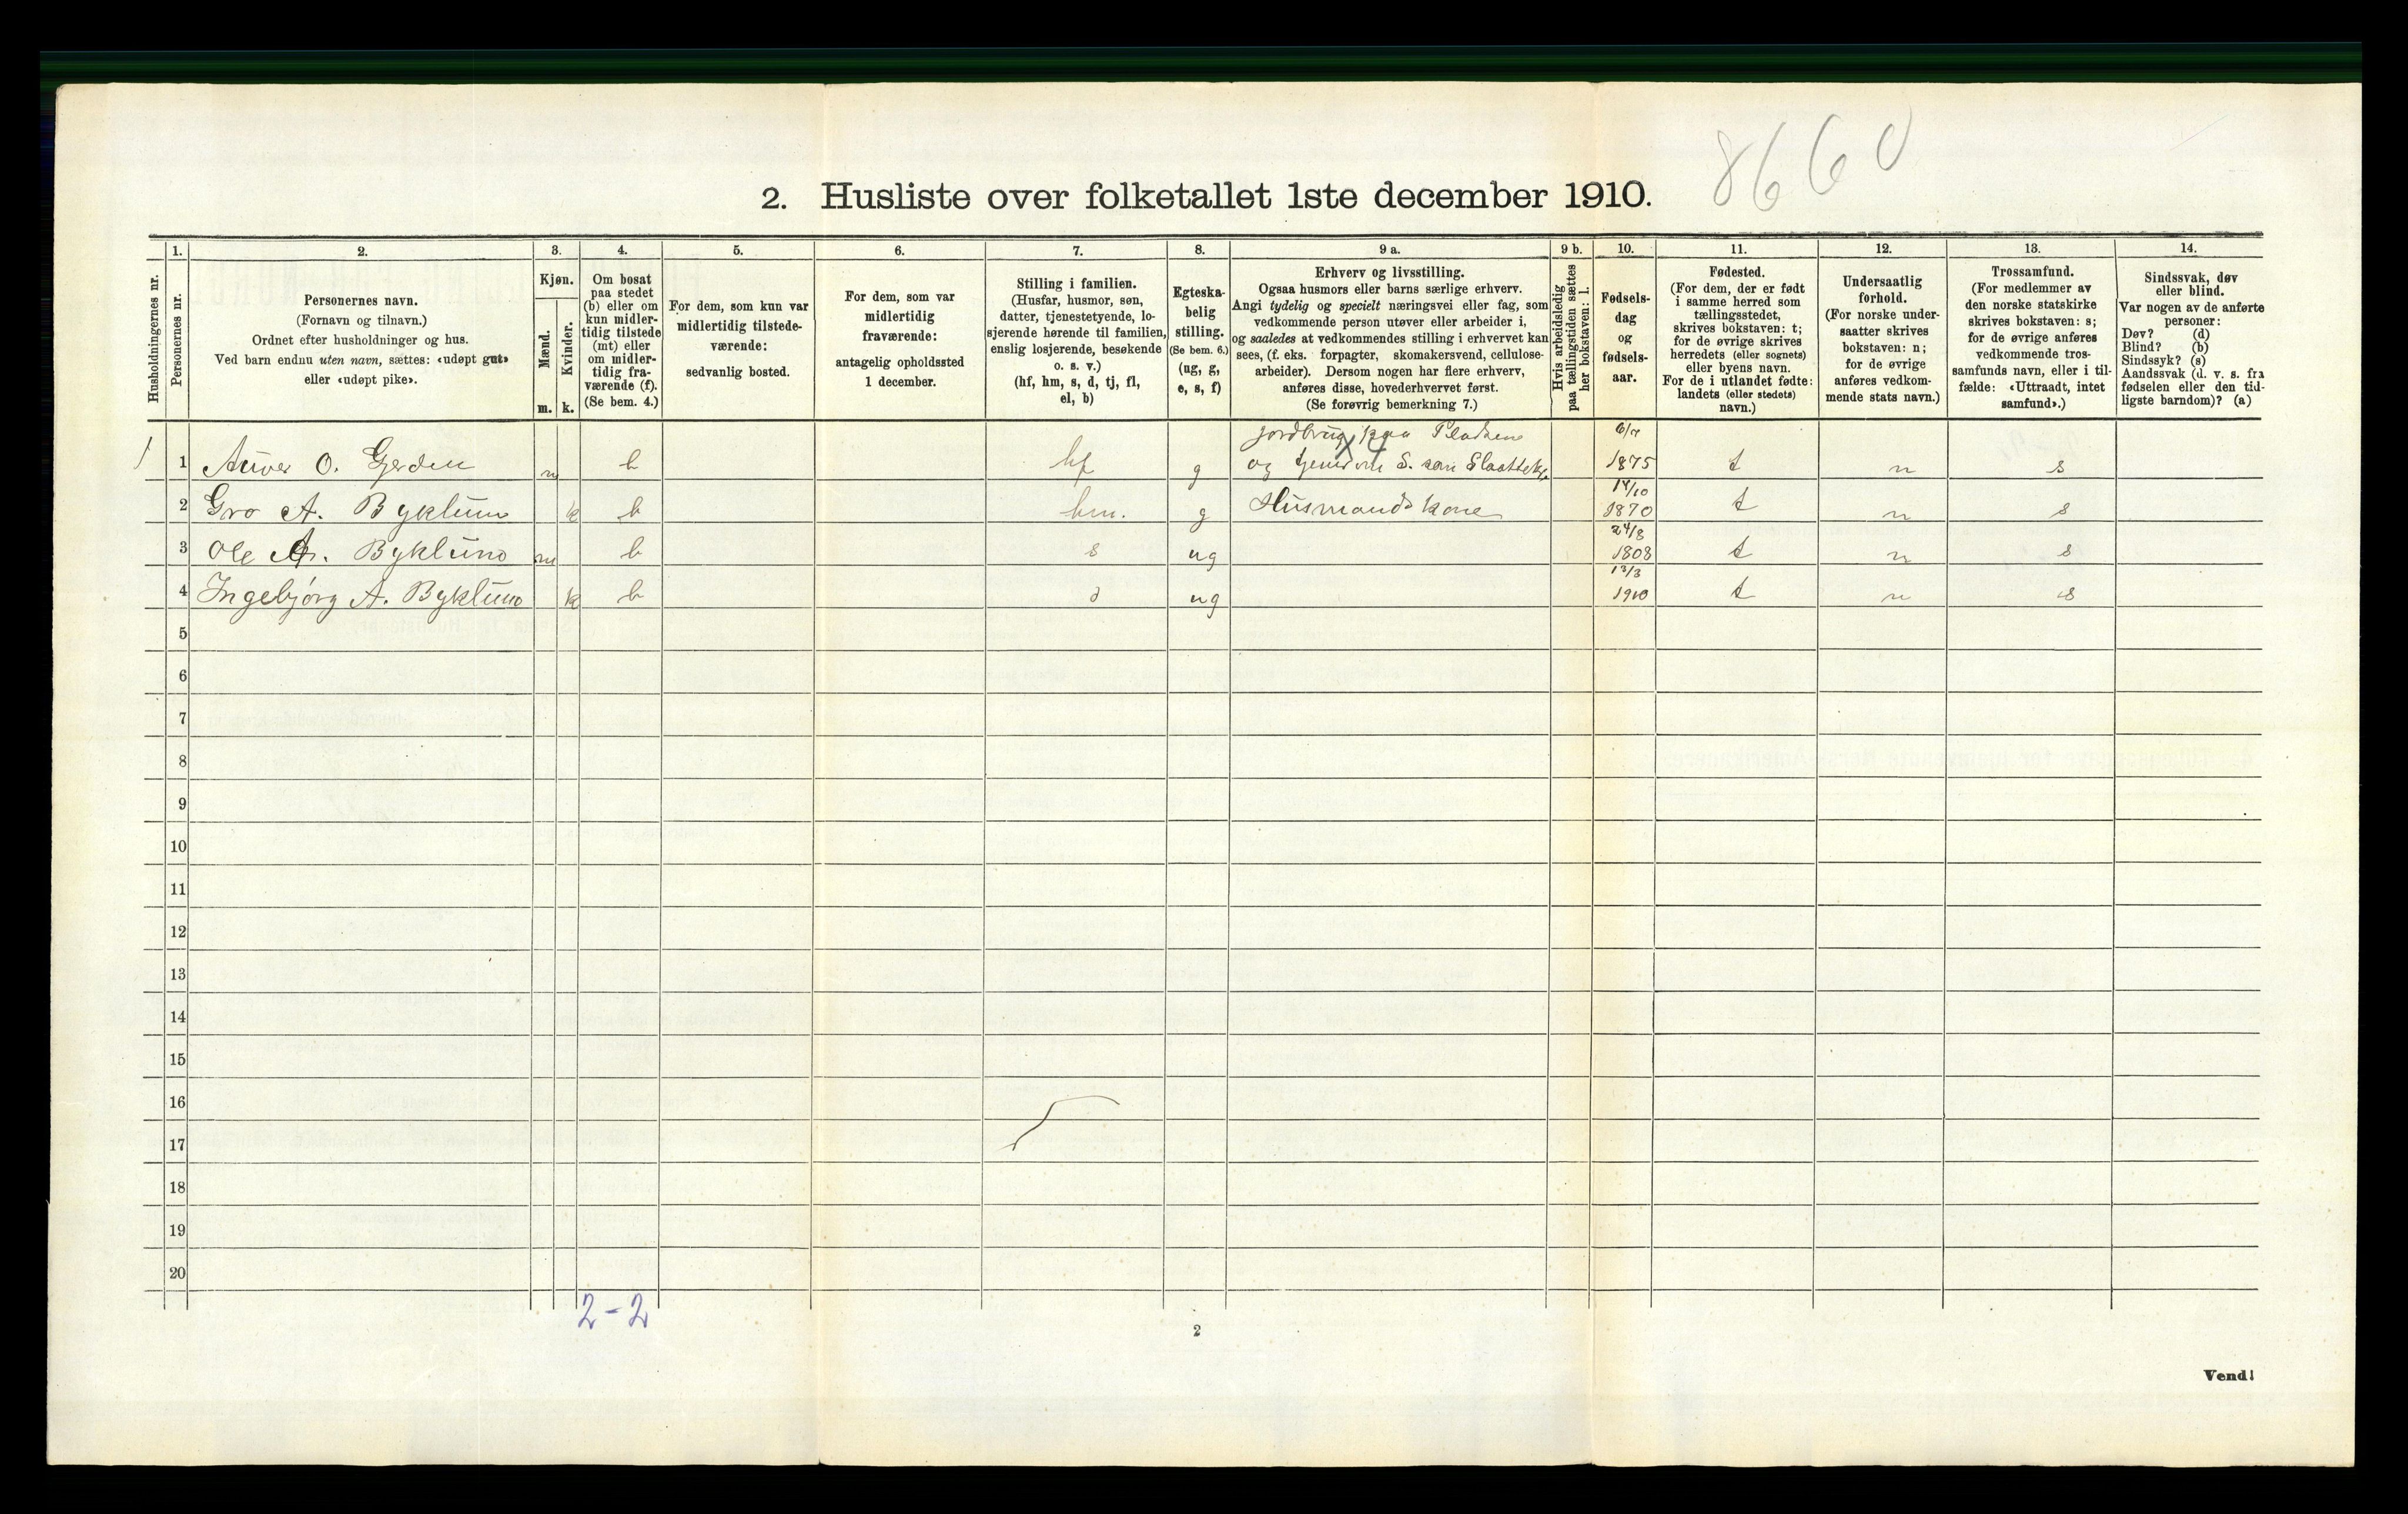 8660
2. Husliste over folketallet 1ste december 1910.
Husholdningernes nr.
1.
Personernes nr.
2.
Personernes navn.
(Fornavn og tilnavn.)
Ordnet efter husholdninger og hus.
Ved barn endnu uten navn, sættes: «udøpt gut»
eller «udøpt pike».
3.
Kjøn.
Mænd.
m.
Kvinder.
k.
4.
Om bosat
paa stedet
(b) eller om
kun midler-
tidig tilstede
(mt) eller
om midler-
tidig fra-
værende (f).
(Se bem. 4.)
5.
For dem, som kun var
midlertidig tilstede-
værende:
sedvanlig bosted.
6.
For dem, som var
midlertidig
fraværende:
antagelig opholdssted
1 december.
7.
Stilling i familien.
(Husfar, husmor, søn,
datter, tjenestetyende, lo-
sjerende hørende til familien,
enslig losjerende, besøkende
o. s. v.)
(hf, hm, s, d, tj, fl,
el, b)
8.
Egteska-
belig
stilling.
(Se bem. 6.)
(ug, g,
e, s, f)
9 a.
Erhverv og livsstilling.
Ogsaa husmors eller barns særlige erhverv.
Angi tydelig og specielt næringsvei eller fag, som
vedkommende person utøver eller arbeider i,
og saaledes at vedkommendes stilling i erhvervet kan
sees, (f. eks. forpagter, skomakersvend, cellulose-
arbeider). Dersom nogen har flere erhverv,
anføres disse, hovederhvervet først.
(Se forøvrig bemerkning 7.)
9 b.
Hvis arbeidsledig
paa tællingstiden sættes
her bokstaven: l.
10.
Fødsels-
dag
og
fødsels-
aar.
11.
Fødested.
(For dem, der er født
i samme herred som
tællingsstedet,
skrives bokstaven: t;
for de øvrige skrives
herredets (eller sognets)
eller byens navn.
For de i utlandet fødte:
landets (eller stedets)
navn.)
12.
Undersaatlig
forhold.
(For norske under-
saatter skrives
bokstaven: n;
for de øvrige
anføres vedkom-
mende stats navn.)
13.
Trossamfund.
(For medlemmer av
den norske statskirke
skrives bokstaven: s;
for de øvrige anføres
vedkommende tros-
samfunds navn, eller i til-
fælde: «Uttraadt, intet
samfund».)
14.
Sindssvak, døv
eller blind.
Var nogen av de anførte
personer:
Døv? (d)
Blind? (b)
Sindssyk? (s)
Aandssvak (d. v. s. fra
fødselen eller den tid-
ligste barndom)? (a)
jordbrug paa Pladsen 6/7
1 1 O. m b hf g og S. som 1875 t n s
14/10
2 Gro A. Byklum k b hm. g Husmands kone 1870 t n s
24/8
3 Ole A. Byklum m b s ug 1808 t n s
13/3
4 Ingebjørg A. Byklum k b d ug 1910 t n s
5
6
7
8
9
10
11
12
13
14
15
16
17
18
19
20
2-2
2
Vend!